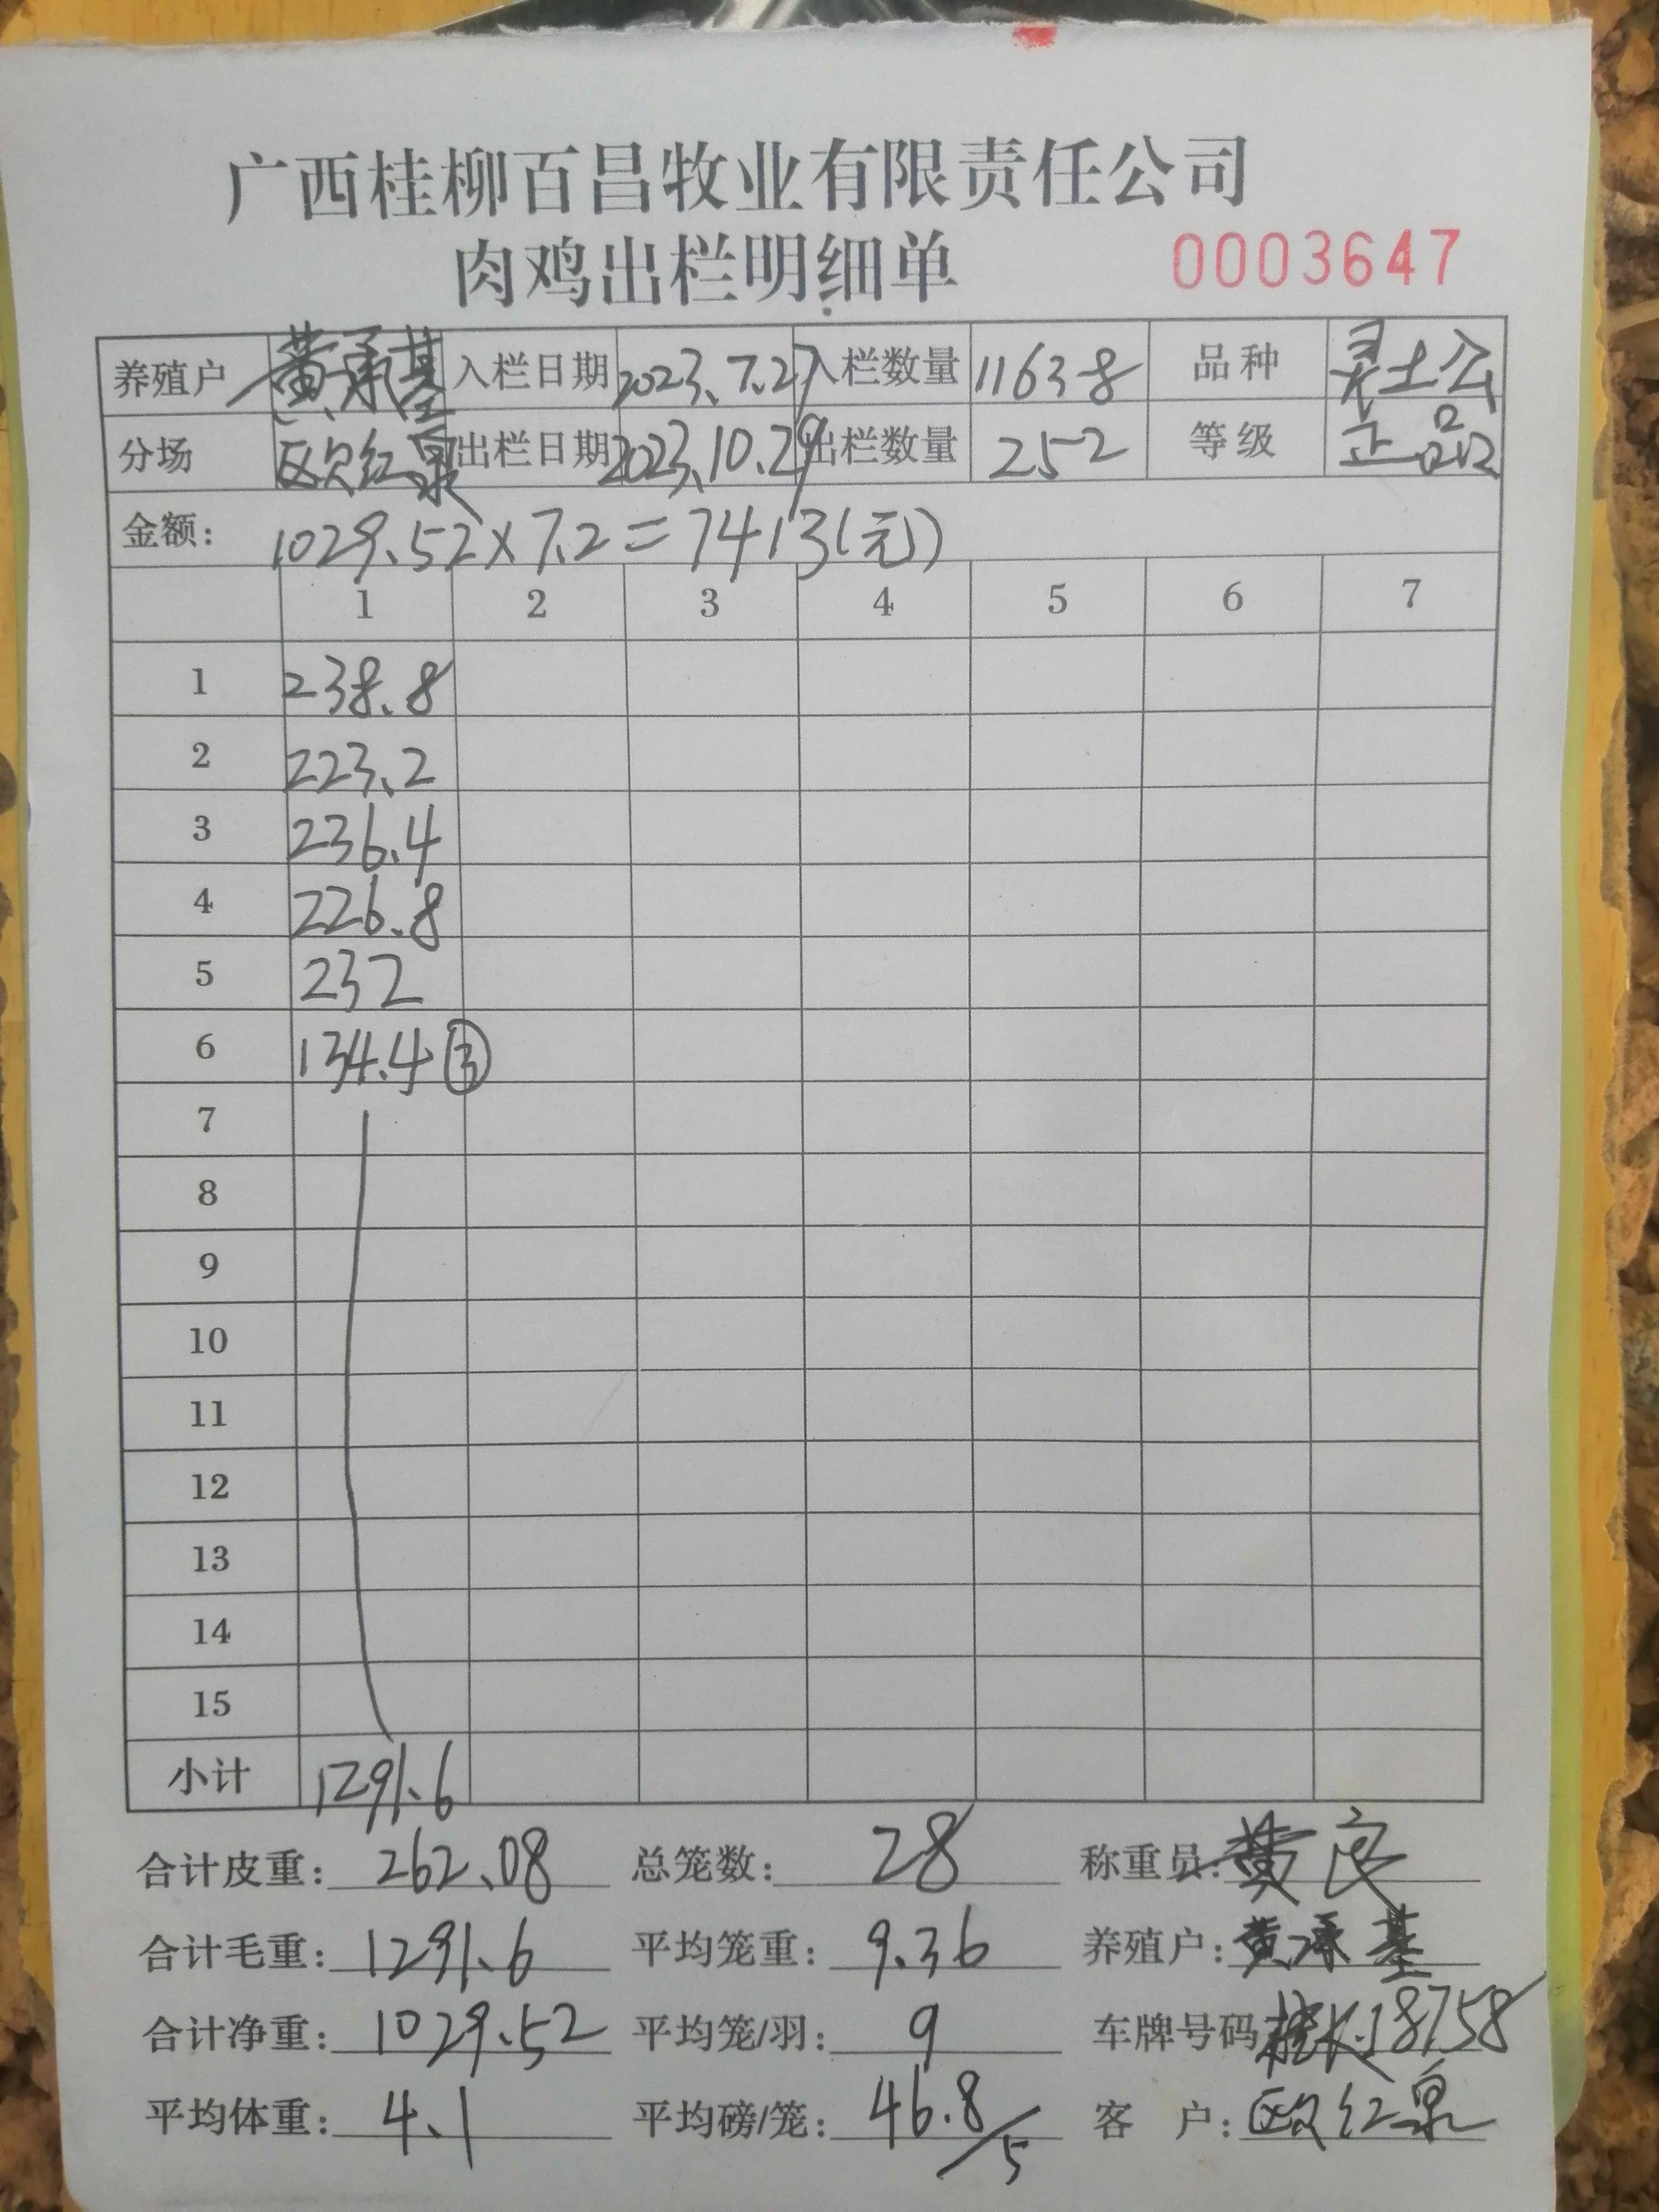 广西桂柳百昌牧业有限责任公司
肉鸡出栏明细单 0003647
养殖户 黄承基 入栏日期 2023.7.27 入栏数量 11638 品种 灵土公
分场 区欠红泉 出栏日期 2023.10.29 出栏数量 252 等级 正品
金额: 1029.52×7.2=7413(元)
1 2 3 4 5 6 7
1 238.8
2 223.2
3 236.4
4 226.8
5 232
6 134.4 ③
7
8
9
10
11
12
13
14
15
小计 1291.6
合计皮重: 262.08 总笼数: 28 称重员: 黄良
合计毛重: 1291.6 平均笼重: 9.36 养殖户: 黄承基
合计净重: 1029.52 平均笼/羽: 9 车牌号码 桂KJ8758
平均体重: 4.1 平均磅/笼: 46.8/5 客 户: 欧红泉